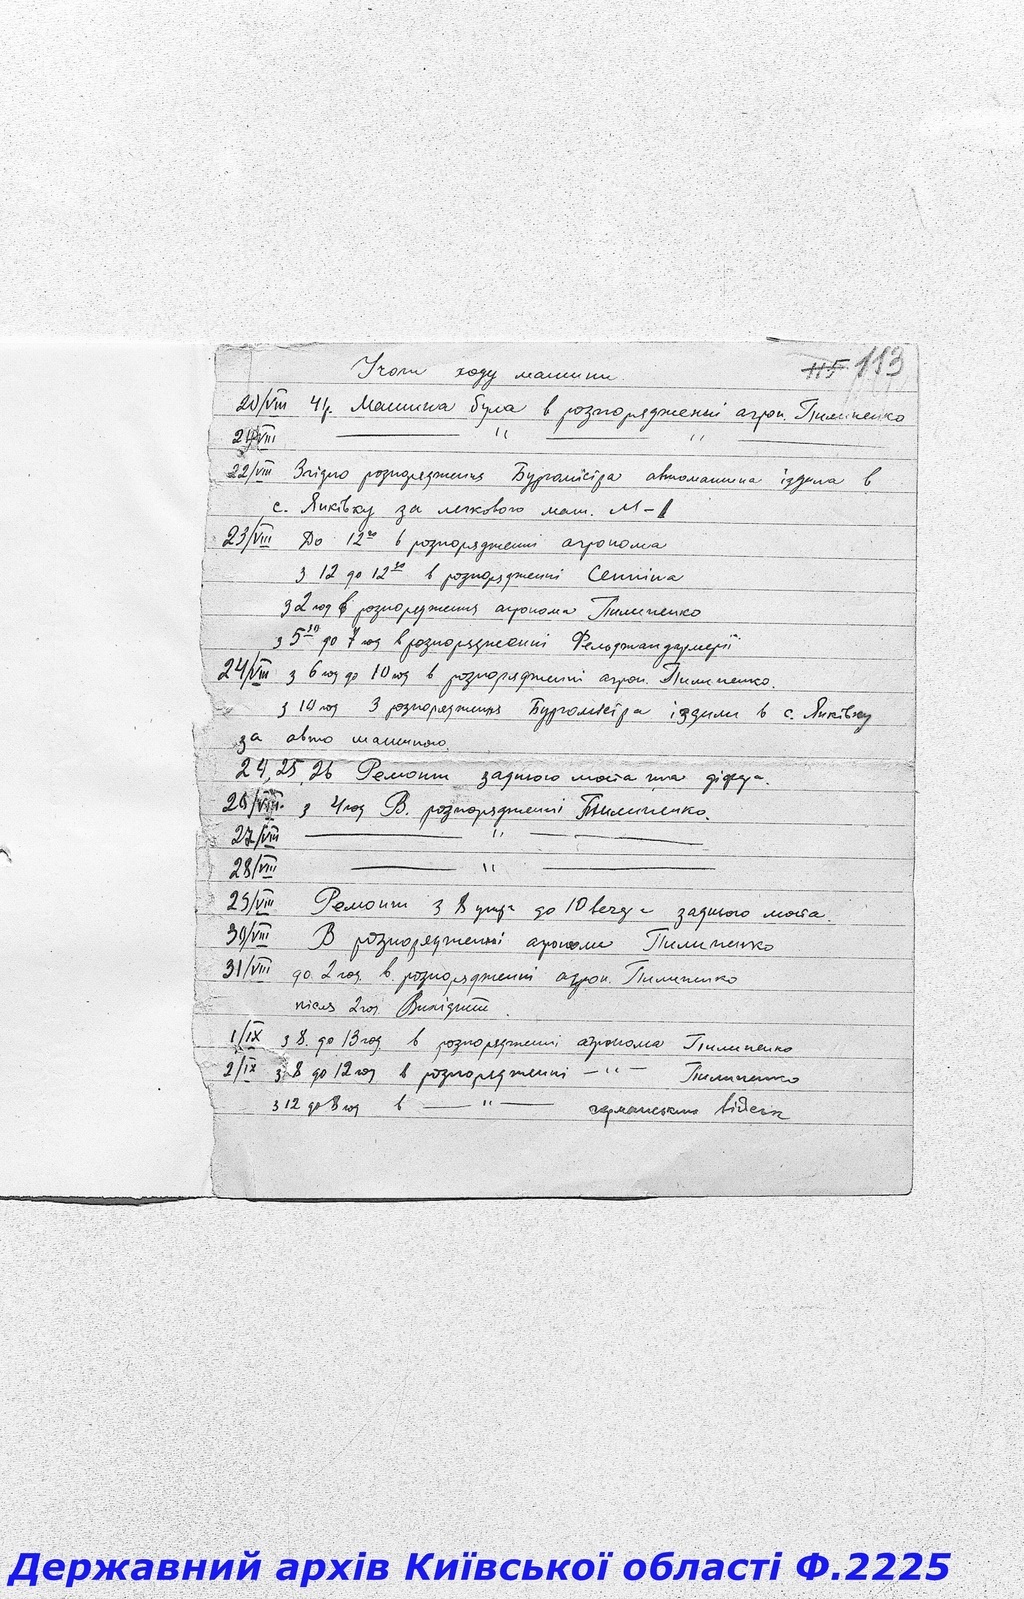 ходу машини 115 113
20/VIII 41р. Машина була в розпорядженні агрон. Пилипенко
21/VIII —— " —— " ——
22/VIII Згідно розпорядження Бургомістра автомашина їздила в
с. Янківку за легкового маш. М-1
23/VIII До 12 в розпорядженні агронома
з 12 до 12³⁰ в розпорядженні
з 2 год в розпорядження агронома Пилипенко
з 5³⁰ до 7 год в розпорядженні Фельджандармерії
24/VIII з 6 год до 10 год в розпорядженні агрон. Пилипенко.
з 10 год З розпорядження Бургомістра їздили в с. Янківку
за авто машиною.
24, 25, 26 Ремонт заднього моста та
26/VIII. з 4 год В. розпорядженні Пилипенко.
27/VIII —— " ——
28/VIII —— " ——
29/VIII Ремонт з 8 до 10 заднього моста.
30/VIII В розпорядженні агронома Пилипенко
31/VIII до 2 год. в. розпорядженні агрон. Пилипенко
після 2 год.
1/IX з 8. до 13 год. в розпорядженні агронома Пилипенко
2/IX з 8 до 12 год в розпорядженні —"— Пилипенко
з 12 до 8 год в —— " —— германським
Державний архів Київської області Ф.2225